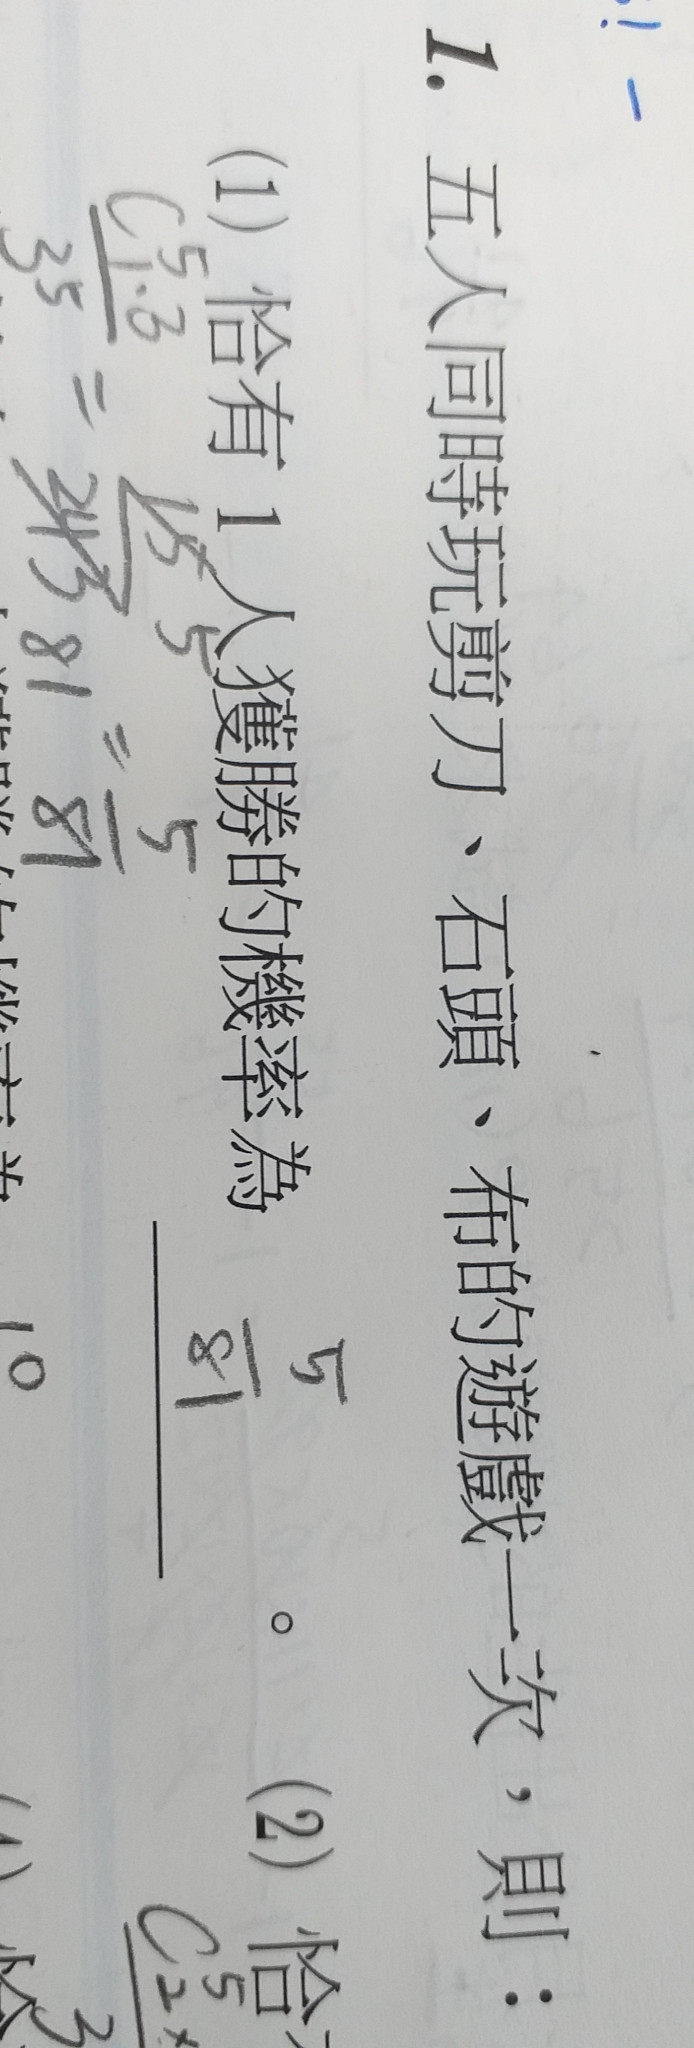 1. 五人同時玩剪刀、石頭、布的遊戲一次，則：
(1) 恰有 1 人獲勝的機率為 5/81 。 (2) 恰
C⁵₁·3/3⁵ = 15/243 = 5/81
5
81
C⁵₂×
3
10